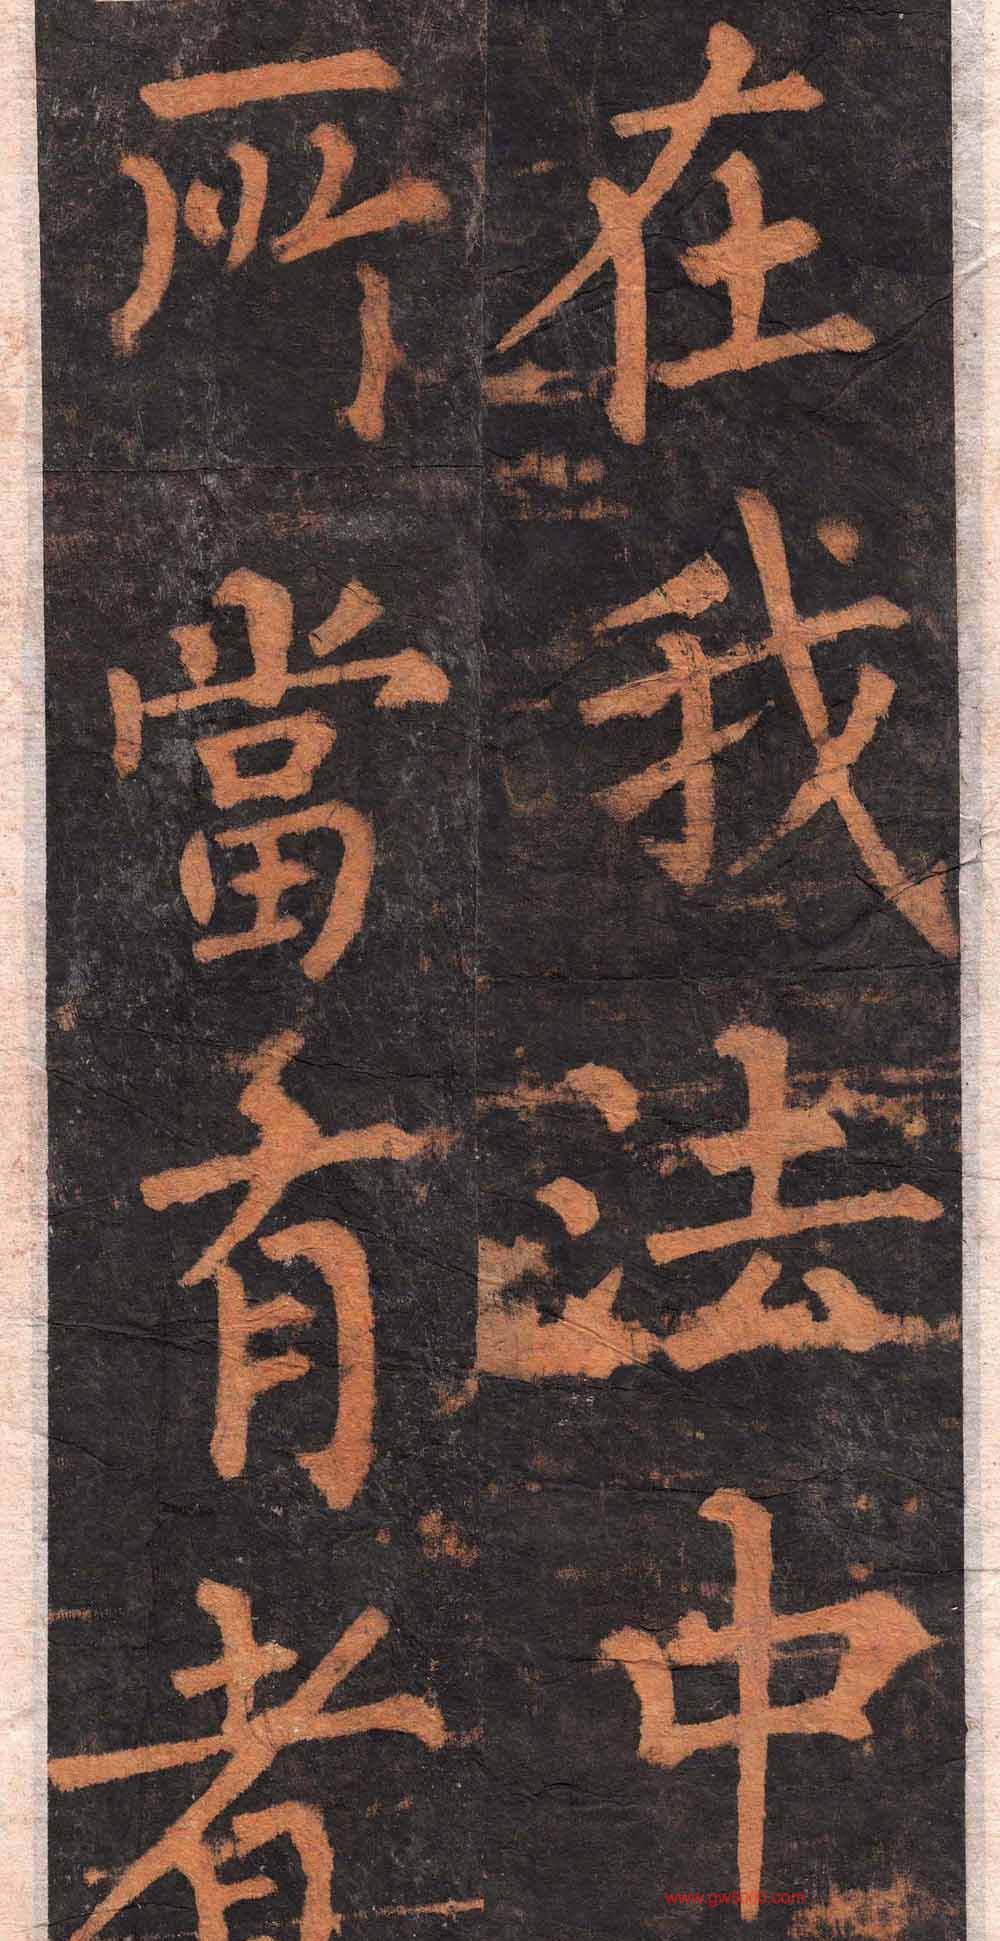 在我法中
所當有者
www.gw5000.com